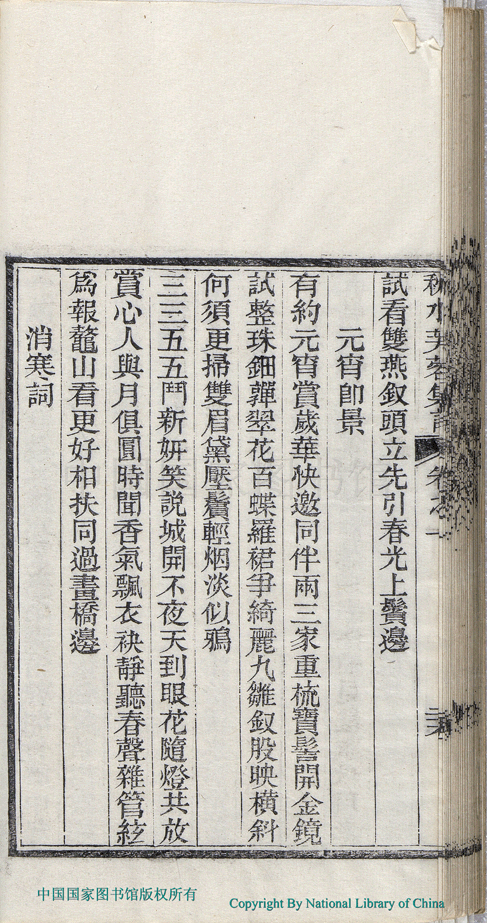 試看雙燕釵頭立先引春光上鬢邊
元宵卽景
有約元宵賞歲華快邀同伴兩三家重梳寶髻開金鏡
試整珠鈿嚲翠花百蝶羅裙爭綺麗九雛釵股映橫斜
何須更掃雙眉黛壓鬢輕烟淡似鴉
三三五五鬥新妍笑說城開不夜天到眼花隨燈共放
賞心人與月俱圓時聞香氣飄衣袂靜聽春聲雜管絃
爲報鼇山看更好相扶同過畫橋邊
消寒詞
中国国家图书馆版权所有
Copyright By National Library of China